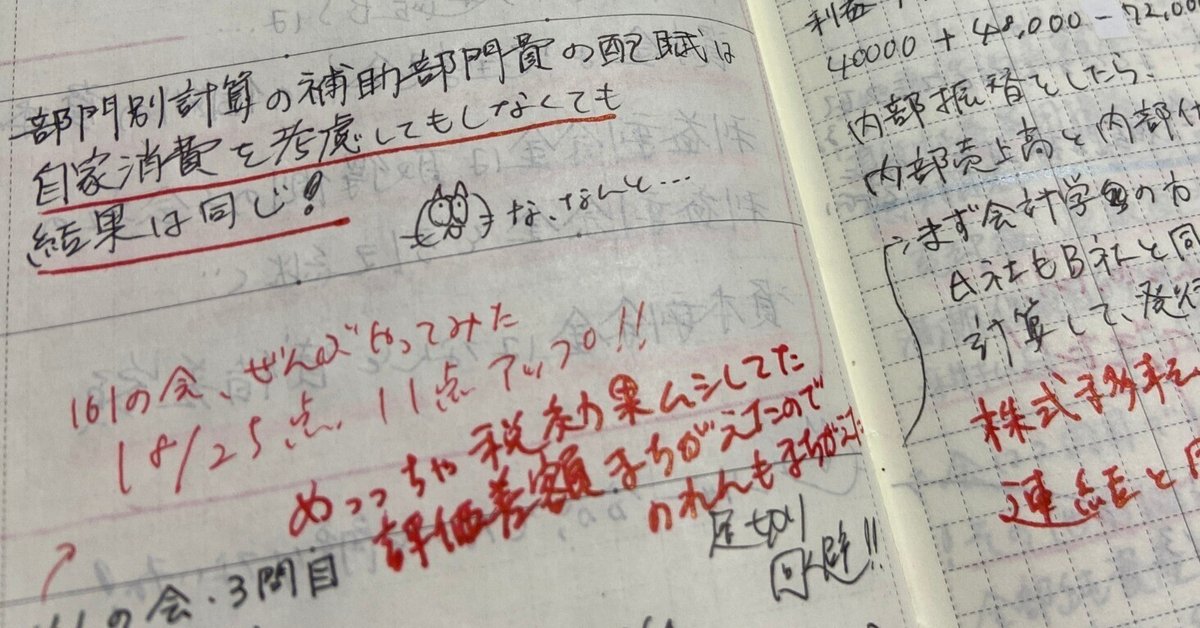 部門別計算の補助部門費の配賦は
自家消費を考慮してもしなくても
結果は同じ!
な、なんと…
161の会、ぜんぶやってみた
18/25点、11点アップ!!
めっっちゃ税効果ムシしてた
評価差額まちがえたので
のれんもまちがえた
足切り
回避!!
の会・3問目
利益
40000 + 48,000 - 72,00
内部振替としたら、
内部売上高と内部仕
まず会計学の方
A社もB社と同
計算して、発行
株式移転
連結と同